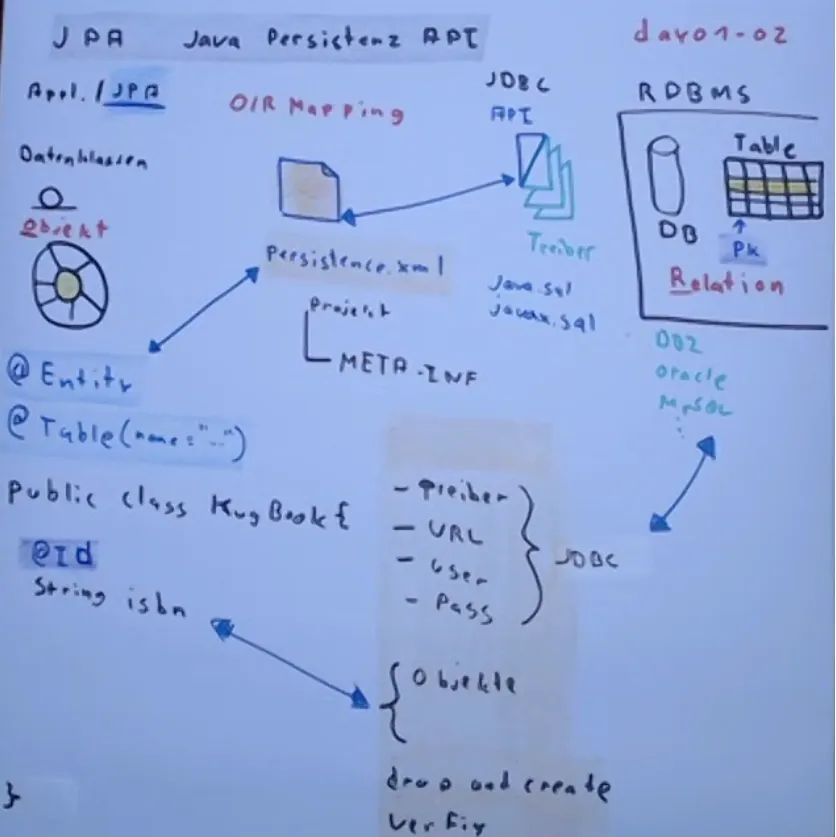 JPA Java Persistenz API
day01-02
Appl. / JPA
O/R Mapping
JDBC
API
RDBMS
Datenklassen
Objekt
Table
DB
PK
Relation
Treiber
Persistence.xml
java.sql
javax.sql
Projekt
META-INF
DB2
Oracle
MySQL
@ Entity
@ Table(name="..")
Public class KugBook {
@Id
String isbn
- Treiber
- URL
- User
- Pass
JDBC
Objekte
drop and create
}